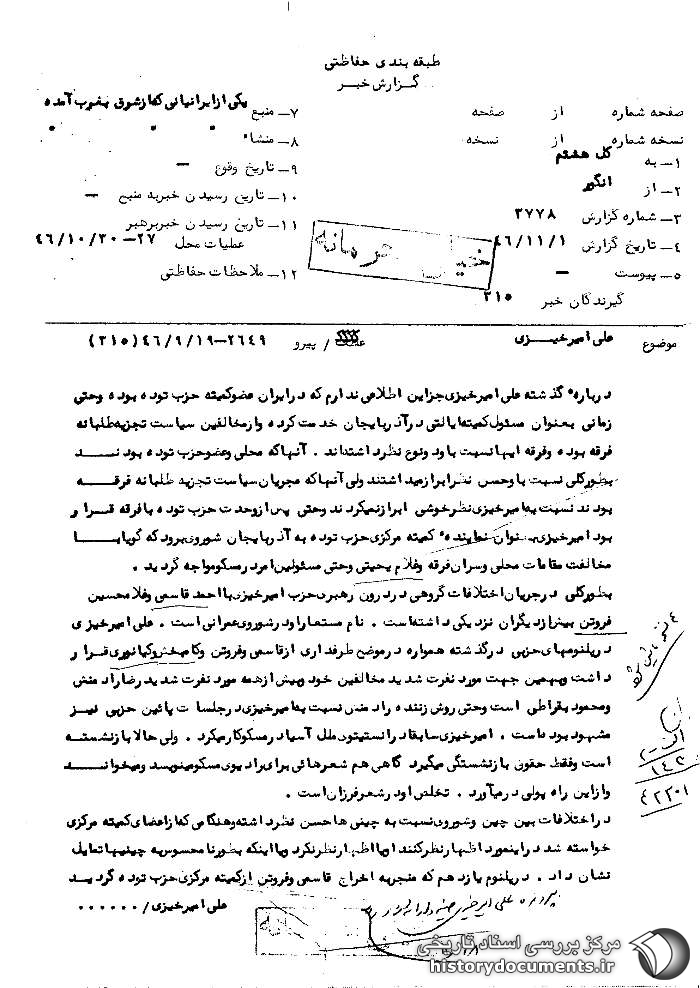 طبقه بندی حفاظتی
گزارش خبر
صفحه شماره از صفحه
نسخه شماره از نسخه
۱- به کل هشتم
۲- از انگور
۳- شماره گزارش ۳۷۷۸
۴- تاریخ گزارش ۴۶/۱۱/۱
۵- پیوست —
گیرندگان خبر ۳۱۵
۷- منبع یکی از ایرانیانی که از شرق بغرب آمده
۸- منشاء
۹- تاریخ وقوع —
۱۰- تاریخ رسیدن خبر به منبع —
۱۱- تاریخ رسیدن خبر برهبر
عملیات محل ۲۷-۴۶/۱۰/۳۰
۱۲- ملاحظات حفاظتی
خیلی محرمانه
موضوع علی امیرخیزی / پیرو ۲۶۴۹-۴۶/۹/۱۹ (۳۱۵)
درباره گذشته علی امیرخیزی جز این اطلاعی ندارم که در ایران عضو کمیته حزب توده بوده و حتی
زمانی بعنوان مسئول کمیته ایالتی در آذربایجان خدمت کرده و از مخالفین سیاست تجزیه طلبانه
فرقه بوده و فرقه ایها نسبت باو دو نوع نظر داشتهاند . آنها که محلی و عضو حزب توده بودند
بطور کلی نسبت باو حسن نظر ابراز میداشتند ولی آنها که مجریان سیاست تجزیه طلبانه فرقه
بودند نسبت به امیرخیزی نظر خوشی ابراز نمیکردند و حتی پس از وحدت حزب توده با فرقه قرار
بود امیرخیزی بعنوان نماینده کمیته مرکزی حزب توده به آذربایجان شوروی برود که گویا با
مخالفت مقامات محلی و سران فرقه و غلام یحیی و حتی مسئولین امر در مسکو مواجه گردید .
بطور کلی در جریان اختلافات گروهی در درون رهبری حزب امیرخیزی با احمد قاسمی و غلامحسین
فروتن بیش از دیگران نزدیکی داشته است . نام مستعار او در شوروی عمرانی است . علی امیرخیزی
در پلنومهای حزبی در گذشته همواره در موضع طرفداری از قاسمی و فروتن و کامبخش و کیانوری قرار
داشت و بهمین جهت مورد نفرت شدید مخالفین خود و بیش از همه مورد نفرت شدید رضا رادمنش
و محمود بقراطی است و حتی روش زننده رادمنش نسبت به امیرخیزی در جلسات پائین حزبی نیز
مشهود بوده است . امیرخیزی سابقا در انستیتوی ملل آسیا در مسکو کار میکرد . ولی حالا بازنشسته
است و فقط حقوق بازنشستگی میگیرد گاهی هم شعرهائی برای رادیوی مسکو مینویسد و میخواند
و از این راه پولی در میآورد . تخلص او در شعر فرزان است .
در اختلافات بین چین و شوروی نسبت به چینی ها حسن نظر داشته و هنگامی که از اعضای کمیته مرکزی
خواسته شد در اینمورد اظهار نظر کنند او یا اظهار نظر نکرد و یا اینکه بطور نامحسوس به چینیها تمایل
نشان داد . در پلنوم یازدهم که منجر به اخراج قاسمی و فروتن از کمیته مرکزی حزب توده گردید
علی امیرخیزی / ۰۰۰۰۰۰
پرونده علی امیرخیزی
۱۴۲
۴۲۲۰۱
مرکز بررسی اسناد تاریخی
historydocuments.ir